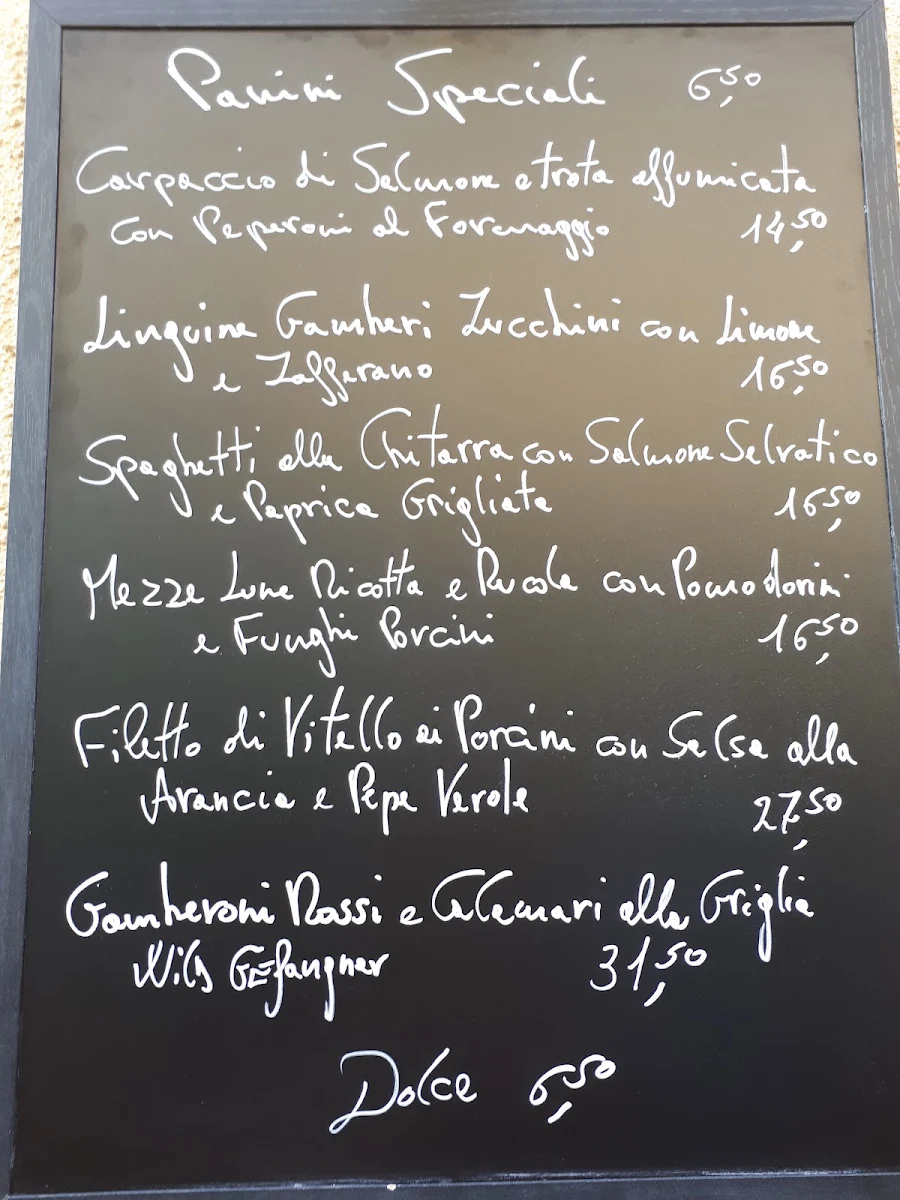 Panini Speciali 6,50
Carpaccio di Salmone e trota affumicata
con Peperoni al Formaggio 14,50
Linguine Gamberi Zucchini con Limone
e Zafferano 16,50
Spaghetti alla Chitarra con Salmone Selvatico
e Paprica Grigliata 16,50
Mezze Lune Ricotta e Rucola con Pomodorini
e Funghi Porcini 16,50
Filetto di Vitello ai Porcini con Salsa alla
Arancia e Pepe Verole 27,50
Gamberoni Rossi e Calamari alla Griglia
Wild GEfangner 31,50
Dolce 6,50